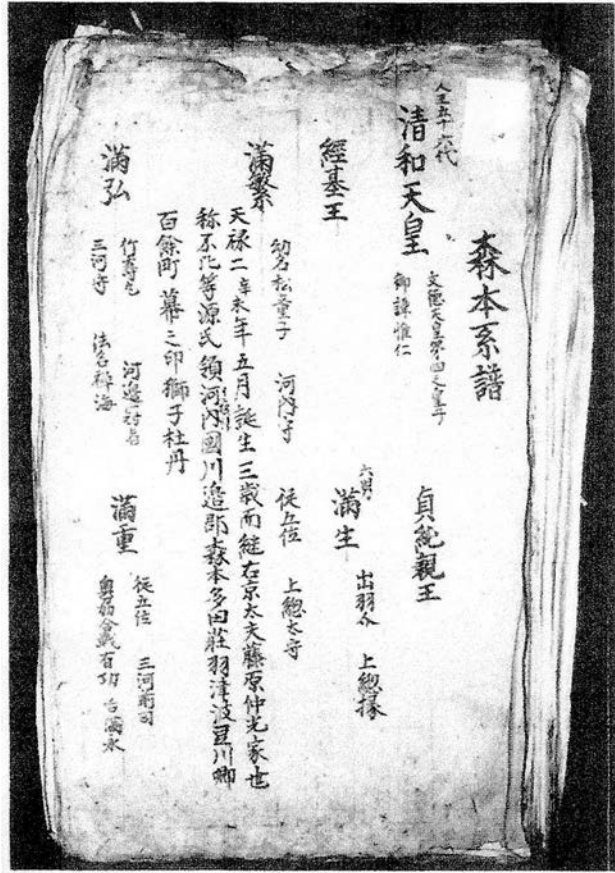 森本系譜
人王五十六代
清和天皇
文徳天皇第四之皇子
御諱惟仁
貞純親王
經基王
六男
滿生
出羽介 上總掾
滿繁
幼名松童子 河内守 従五位 上總太守
天禄二辛未年五月誕生三歳而継右京太夫藤原仲光家也
称不比等源氏領河内國川邉郡森本多田荘羽津波豆川
百餘町幕之印獅子杜丹
滿弘
竹寿丸 河邉
三河守 法名
滿重
従五位 三河前司
合戦有功